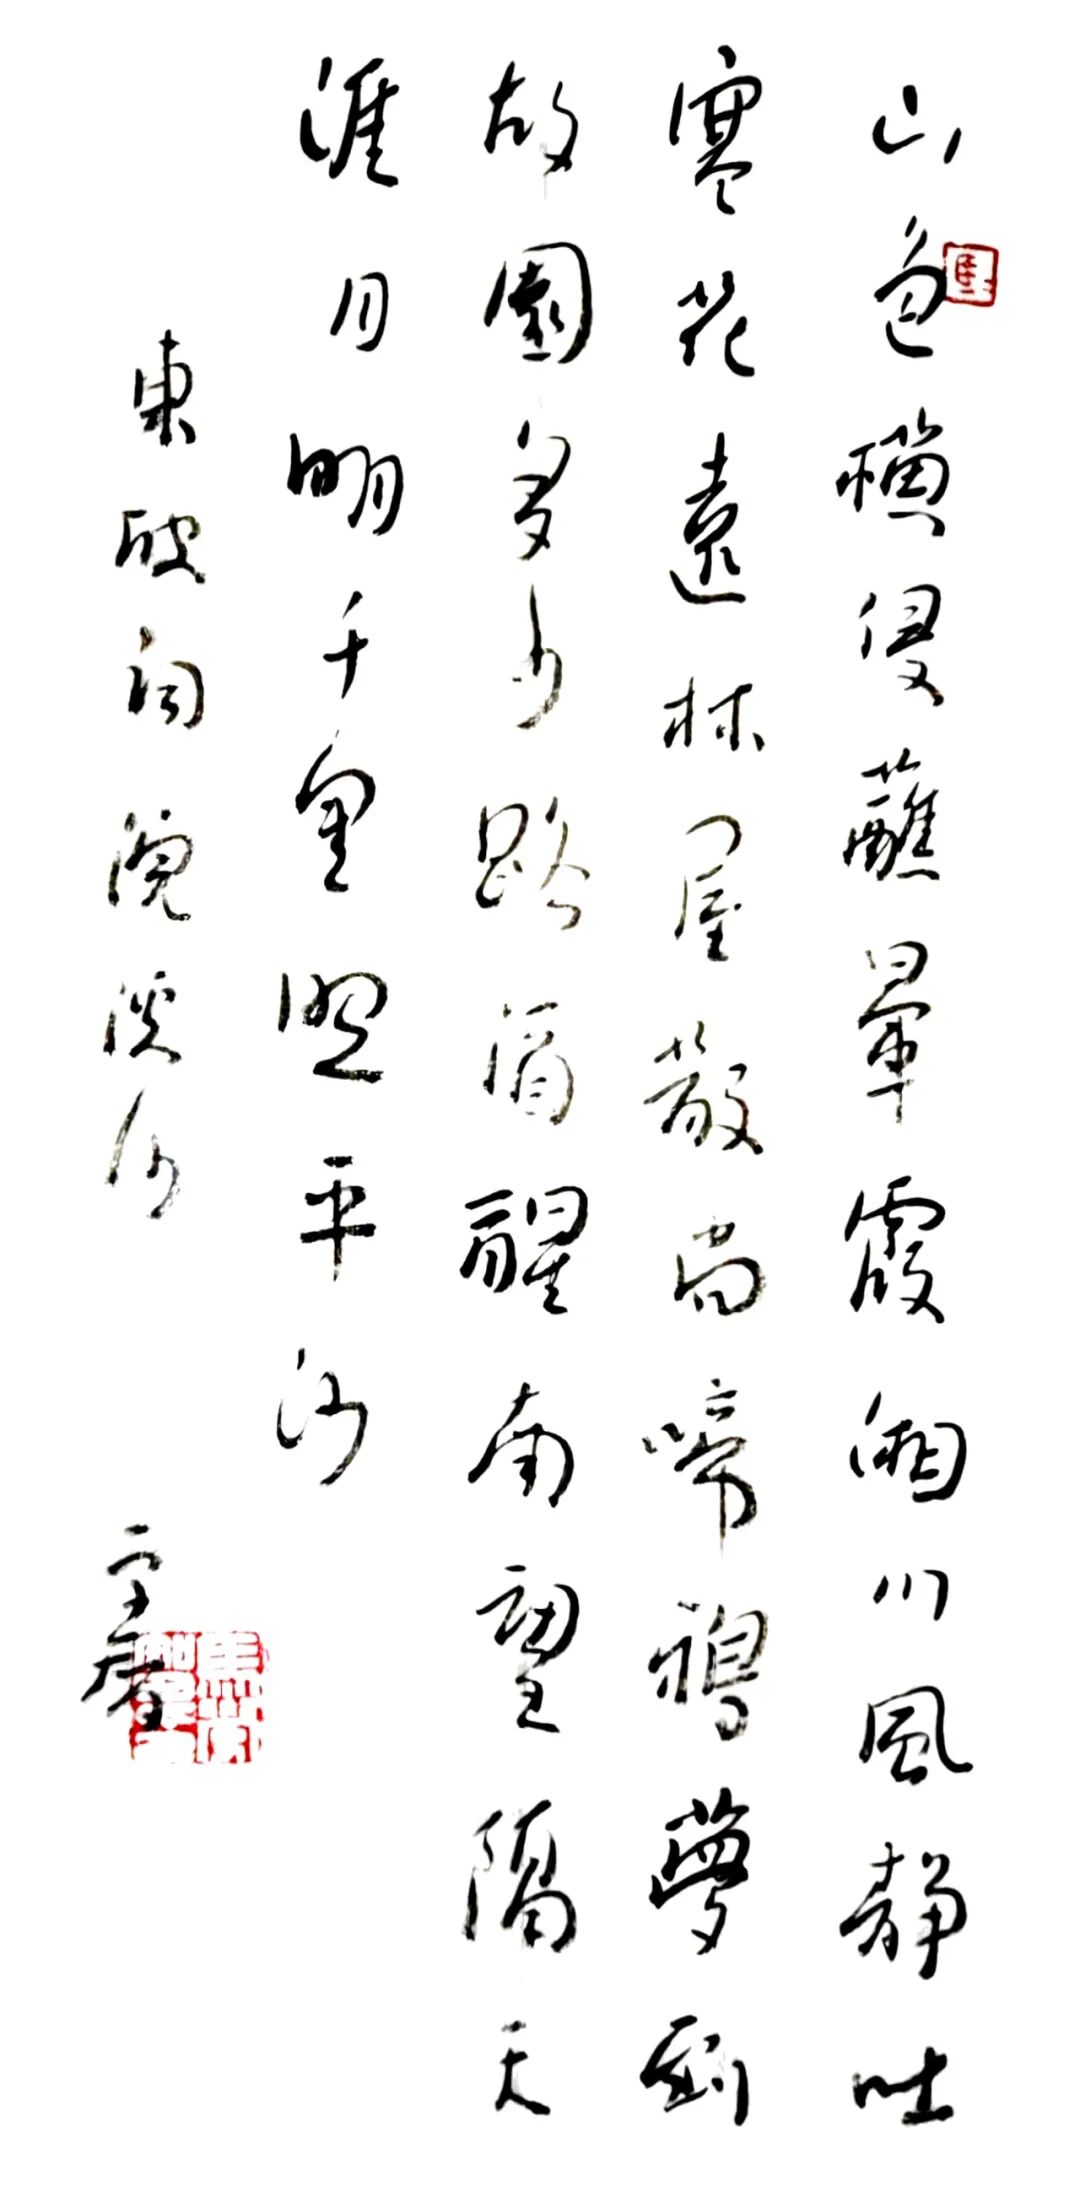 山色橫侵蘸暈霞湘川風靜吐
寒花遠林屋散尚啼鴉夢到
故園多少路酒醒南望隔天
涯月明千里照平沙
東坡詞浣溪沙